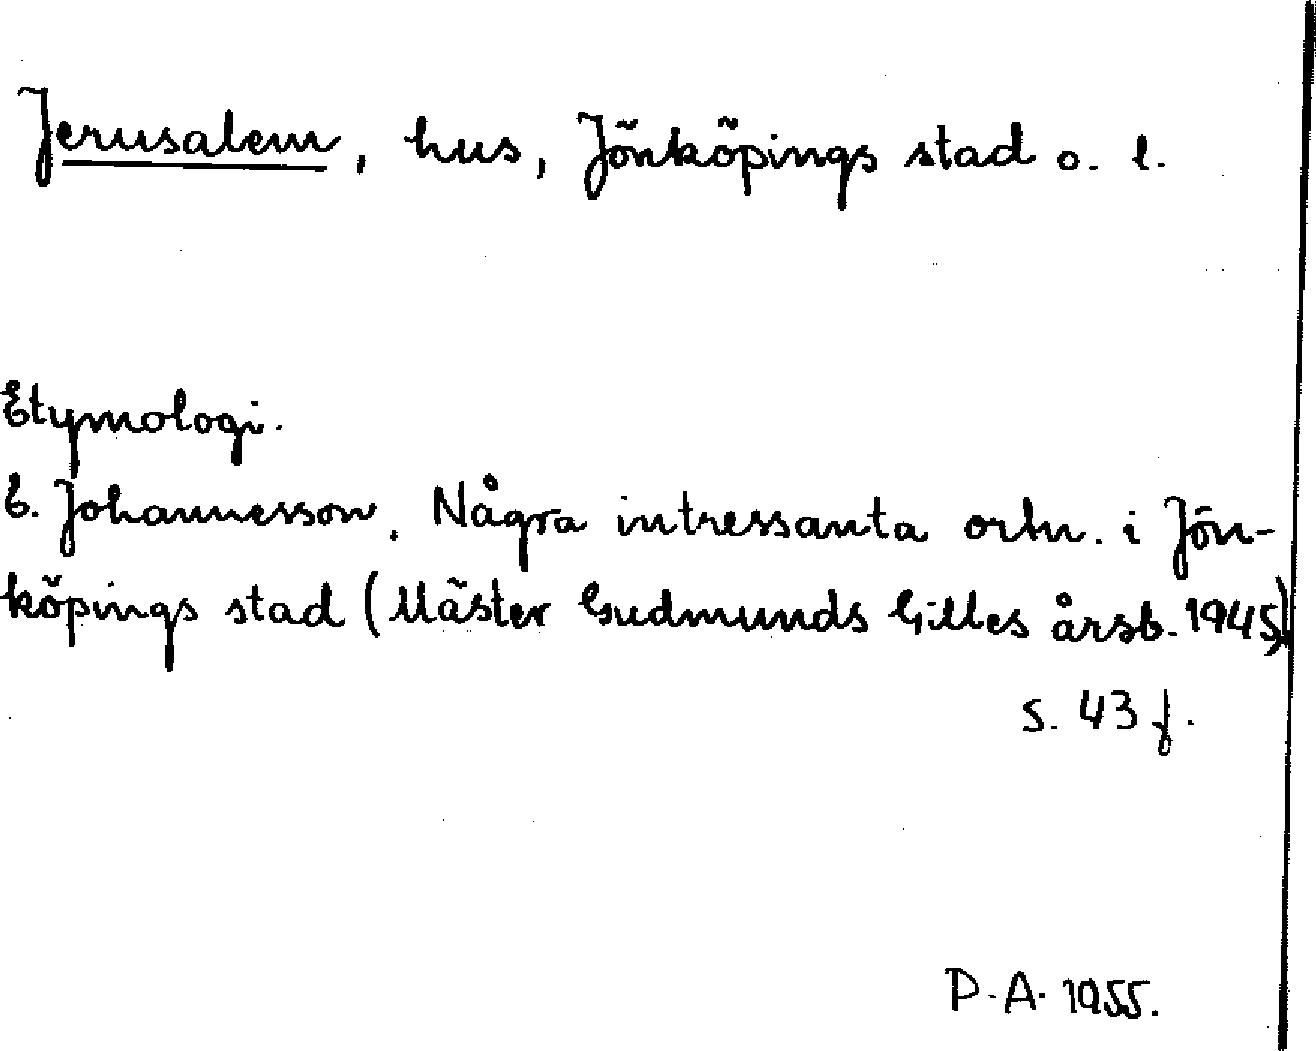 Jerusalem, hus, Jönköpings stad o. l.
Etymologi.
G. Johannesson. Några intressanta ortn. i Jön-
köpings stad (Mäster Gudmunds Gilles årsb. 1945)
s. 43 f.
P.A. 1955.